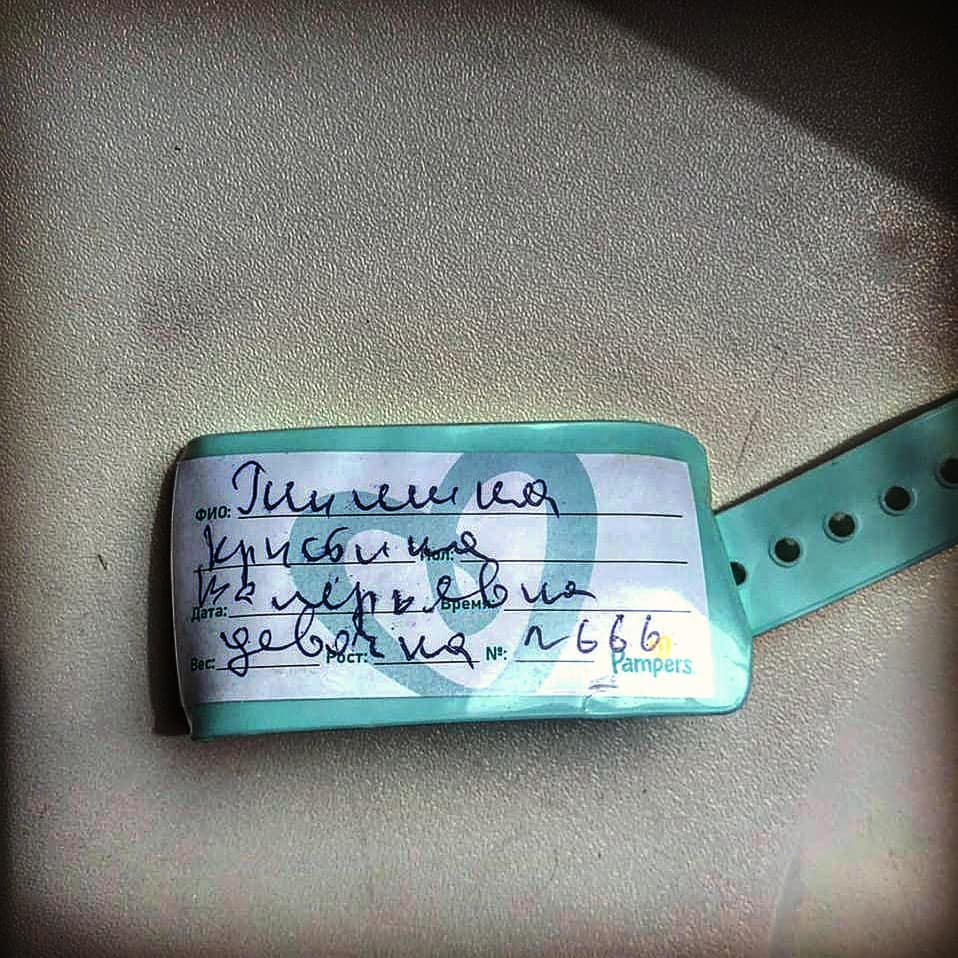 ФИО:
Кристина Пол:
Валерьевна
Дата: Время:
девочка № 666
Вес: Рост: №:
Pampers